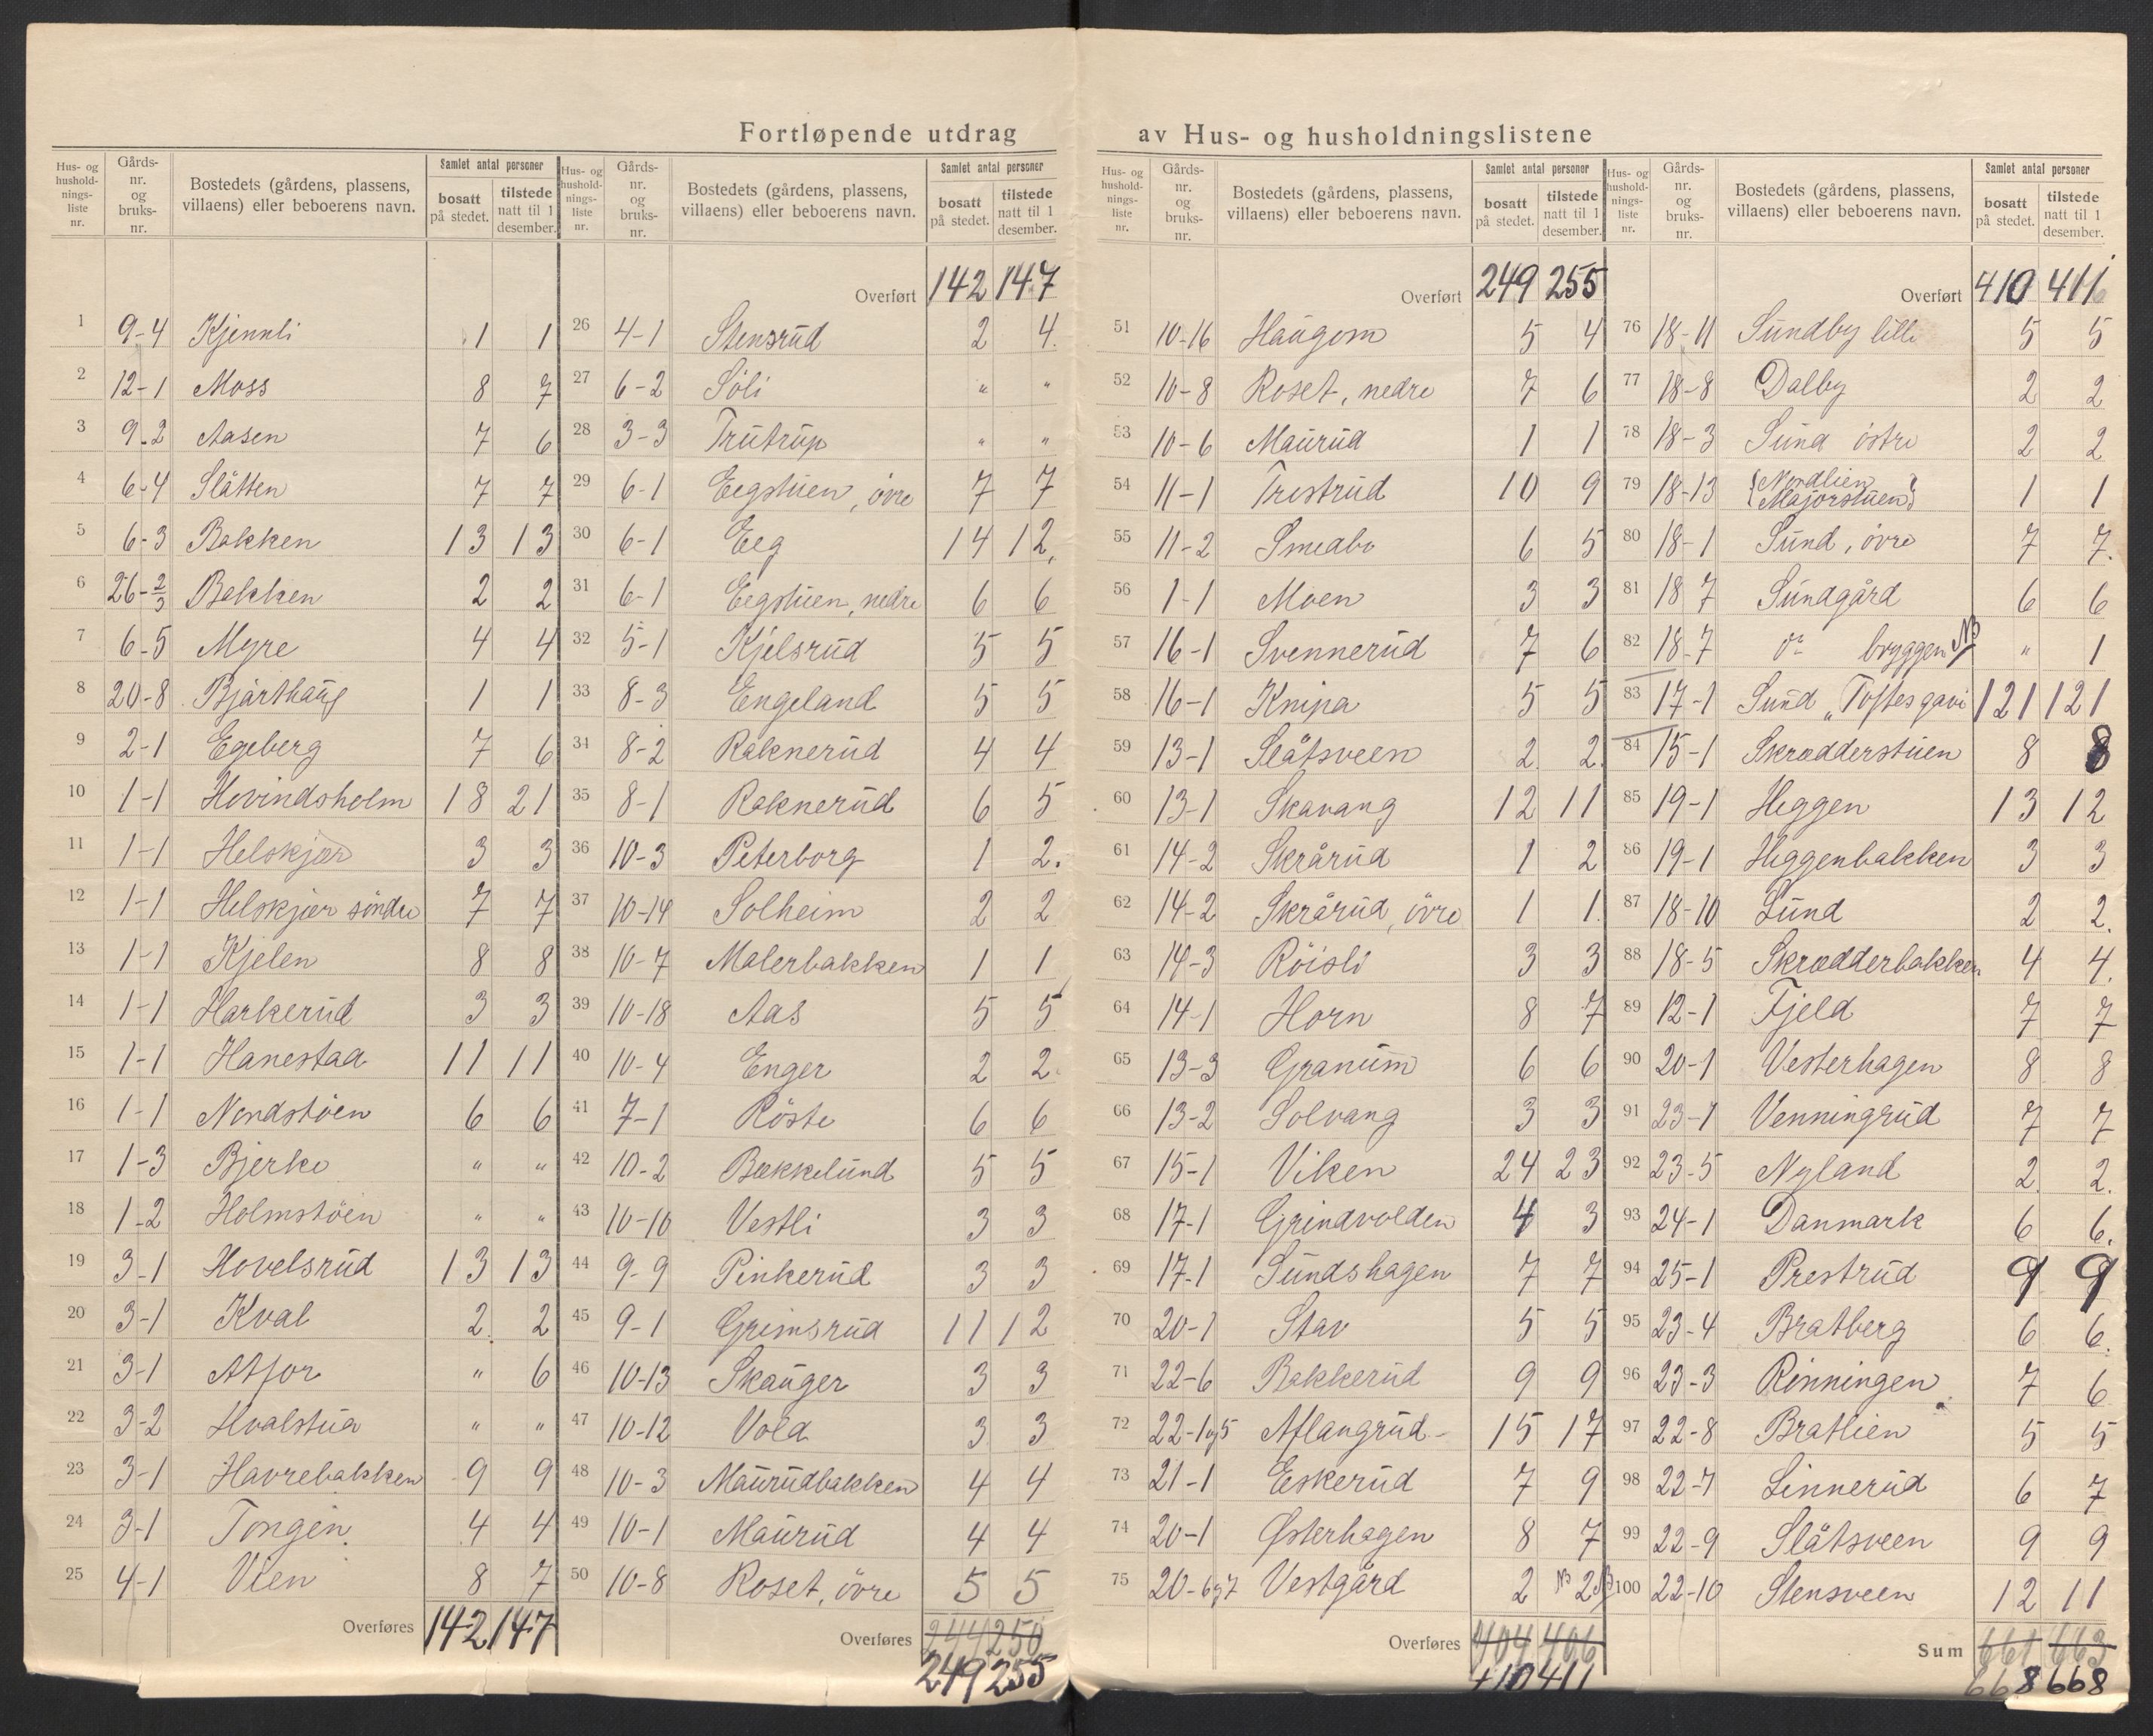 Fortløpende utdrag av Hus- og husholdningslistene
Hus- og husholdningsliste nr. | Gårds-nr. og bruks-nr. | Bostedets (gårdens, plassens, villaens) eller beboerens navn. | Samlet antal personer bosatt på stedet. | tilstede natt til 1 desember.
1 9-4 Kjennli 1 1
2 12-1 Moss 8 7
3 9-2 Aasen 7 6
4 6-4 Slåtten 7 7
5 6-3 Bakken 13 13
6 26-2/3 Bakken 2 2
7 6-5 Myre 4 4
8 20-8 Bjårthaug 1 1
9 2-1 Egeberg 7 6
10 1-1 Hovindsholm 18 21
11 1-1 Helskjær 3 3
12 1-1 Helskjær söndre 7 7
13 1-1 Kjelen 8 8
14 1-1 Harkerud 3 3
15 1-1 Hanestad 11 11
16 1-1 Nordstöen 6 6
17 1-3 Bjerke " "
18 1-2 Holmstöen " "
19 3-1 Hovelsrud 13 13
20 3-1 Kval 2 2
21 3-1 Atfor " 6
22 3-2 Hvalstua " "
23 3-1 Havrebakken 9 9
24 3-1 Tongen 4 4
25 4-1 Vien 8 7
Overføres 142 147
Hus- og husholdningsliste nr. | Gårds-nr. og bruks-nr. | Bostedets (gårdens, plassens, villaens) eller beboerens navn. | Samlet antal personer bosatt på stedet. | tilstede natt til 1 desember.
Overført 142 147
26 4-1 Stensrud 2 4
27 6-2 Söli " "
28 3-3 Trutrup " "
29 6-1 Eegstuen, övre 7 7
30 6-1 Eeg 14 12
31 6-1 Eegstuen, nedre 6 6
32 5-1 Kjelsrud 5 5
33 8-3 Engeland 5 5
34 8-2 Raknerud 4 4
35 8-1 Raknerud 6 5
36 10-3 Peterborg 1 2
37 10-14 Solheim 2 2
38 10-7 Malerbakken 1 1
39 10-18 Aas 5 5
40 10-4 Enger 2 2
41 7-1 Röste 6 6
42 10-2 Bækkelund 5 5
43 10-10 Vestli 3 3
44 9-9 Pinkerud 3 3
45 9-1 Grimsrud 11 12
46 10-13 Skauger 3 3
47 10-12 Vold 3 3
48 10-3 Maurudbakken 4 4
49 10-1 Maurud 4 4
50 10-8 Roset, övre 5 5
Overføres 244 250
249 255
Hus- og husholdningsliste nr. | Gårds-nr. og bruks-nr. | Bostedets (gårdens, plassens, villaens) eller beboerens navn. | Samlet antal personer bosatt på stedet. | tilstede natt til 1 desember.
Overført 249 255
51 10-16 Haugom 5 4
52 10-8 Roset, nedre 7 6
53 10-6 Maurud 1 1
54 11-1 Trostrud 10 9
55 11-2 Smedbo 6 5
56 1-1 Moen 3 3
57 16-1 Svennerud 7 6
58 16-1 Knipa 5 5
59 13-1 Slåtsveen 2 2
60 13-1 Skavang 12 11
61 14-2 Skrårud 1 2
62 14-2 Skrårud, övre 1 1
63 14-3 Röisli 3 3
64 14-1 Horn 8 7
65 13-3 Granum 6 6
66 13-2 Solvang 3 3
67 15-1 Viken 24 23
68 17-1 Grindvolden 4 3
69 17-1 Sundshagen 7 7
70 20-1 Stav 5 5
71 22-6 Bakkerud 9 9
72 22-1og5 Aflangrud 15 17
73 21-1 Eskerud 7 9
74 20-1 Østerhagen 8 7
75 20-6og7 Vestgård 2 2
Overføres 404 406
410 411
Hus- og husholdningsliste nr. | Gårds-nr. og bruks-nr. | Bostedets (gårdens, plassens, villaens) eller beboerens navn. | Samlet antal personer bosatt på stedet. | tilstede natt til 1 desember.
Overført 410 411
76 18-11 Sundby lille 5 5
77 18-8 Dalby 2 2
78 18-3 Sund östre 2 2
79 18-13 (Nordlien Majorstuen) 1 1
80 18-1 Sund, övre 7 7
81 18-7 Sundgård 6 6
82 18-7 do bryggen NB " 1
83 17-1 Sund „Toftesgave 121 121
84 15-1 Skrædderstuen 8 8
85 19-1 Heggen 13 12
86 19-1 Heggenbakken 3 3
87 18-10 Lund 2 2
88 18-5 Skrædderbakken 4 4
89 12-1 Fjeld 7 7
90 20-1 Vesterhagen 8 8
91 23-1 Venningrud 7 7
92 23-5 Nyland 2 2
93 24-1 Danmark 6 6
94 25-1 Prestrud 9 9
95 23-4 Bratberg 6 6
96 23-3 Rinningen 7 6
97 22-8 Bratlien 5 5
98 22-7 Linnerud 6 7
99 22-9 Slåtsveen 9 9
100 22-10 Stensveen 12 11
Sum 661 663
668 668